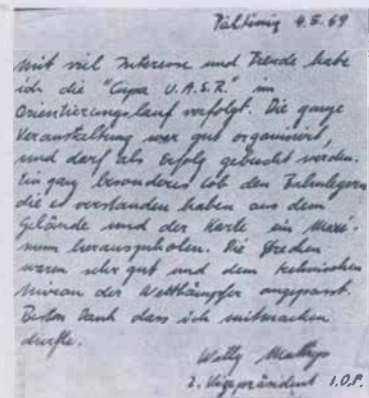 Păltiniş 9.5.69
Mit viel Interesse und Freude habe
ich die "Cupa U.A.S.R." im
Orientierungslauf verfolgt. Die ganze
Veranstaltung war gut organisiert,
und darf als Erfolg gebucht werden.
Ein ganz besonderes Lob den Bahnlegern
die es verstanden haben aus dem
Gelände und der Karte ein Maxi-
mum herauszuholen. Die Strecken
waren sehr gut und dem technischen
Niveau der Wettkämpfer angepasst.
Besten Dank dass ich mitmachen
durfte.
Willy
2. Vizepräsident I.O.F.